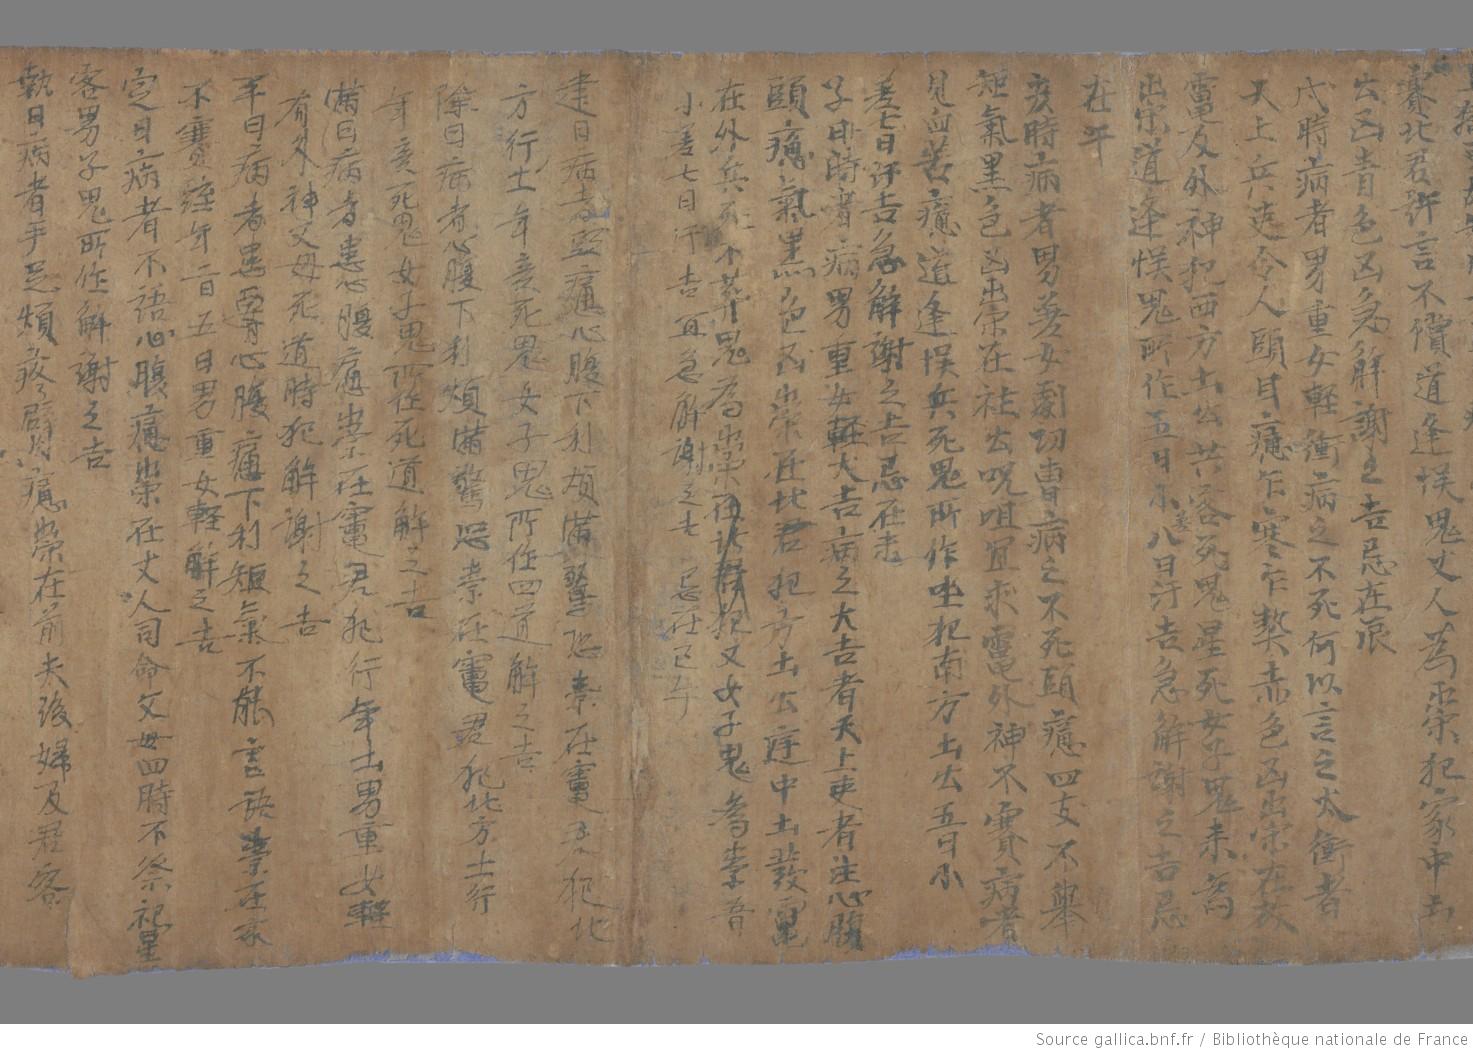 賽北君許言不償道逢悮鬼丈人為祟犯家中土
公凶青色凶急解謝之吉忌在
戌時病者男重女輕衝病之不死何以言之太衝者
天上兵吏令人頭耳痛乍寒乍熱赤色凶出祟在故
竈及外神犯西方土公共客死鬼星死女子鬼未
出祟道逢悮鬼所作五日小差八日汗吉急解謝之吉忌
在午
亥時病者男差女劇功曹病之不死頭痛四支不舉
短氣黑色凶出祟在社公呪咀宜求竈外神不賽病者
見血苦痛道逢悮兵死鬼所作坐犯南方土公五日小
差七日汗吉急解謝之吉忌在未
子日時者病男重女輕大吉病之大吉者天上吏者注心腹
頭痛氣黑色凶出祟在北君犯方土公庭中土
在外兵死不葬鬼為祟 犯又女子鬼為祟
小差七日汗吉宜急解謝之吉 忌在巳午
建日病者 痛心腹下利煩滿驚恐祟在竈君犯北
方行土年亥死鬼女子鬼所作四道解之吉
除日病者心腹下利煩滿驚恐祟在竈君犯北方土行
年亥死鬼女子鬼所作死道解之吉
滿日病者患心腹痛祟在竈君犯行年土男重女輕
有外神父母死道時犯解謝之吉
平日病者患 心腹痛下利短氣不能言語祟在家
不賽 年二日五日男重女輕解之吉
定日病者不語心腹痛祟在丈人司命父母四時不祭祀星
客男子鬼所作解謝之吉
執日病者手足煩疼 痛祟在前夫後婦及君客
Source gallica.bnf.fr / Bibliothèque nationale de France